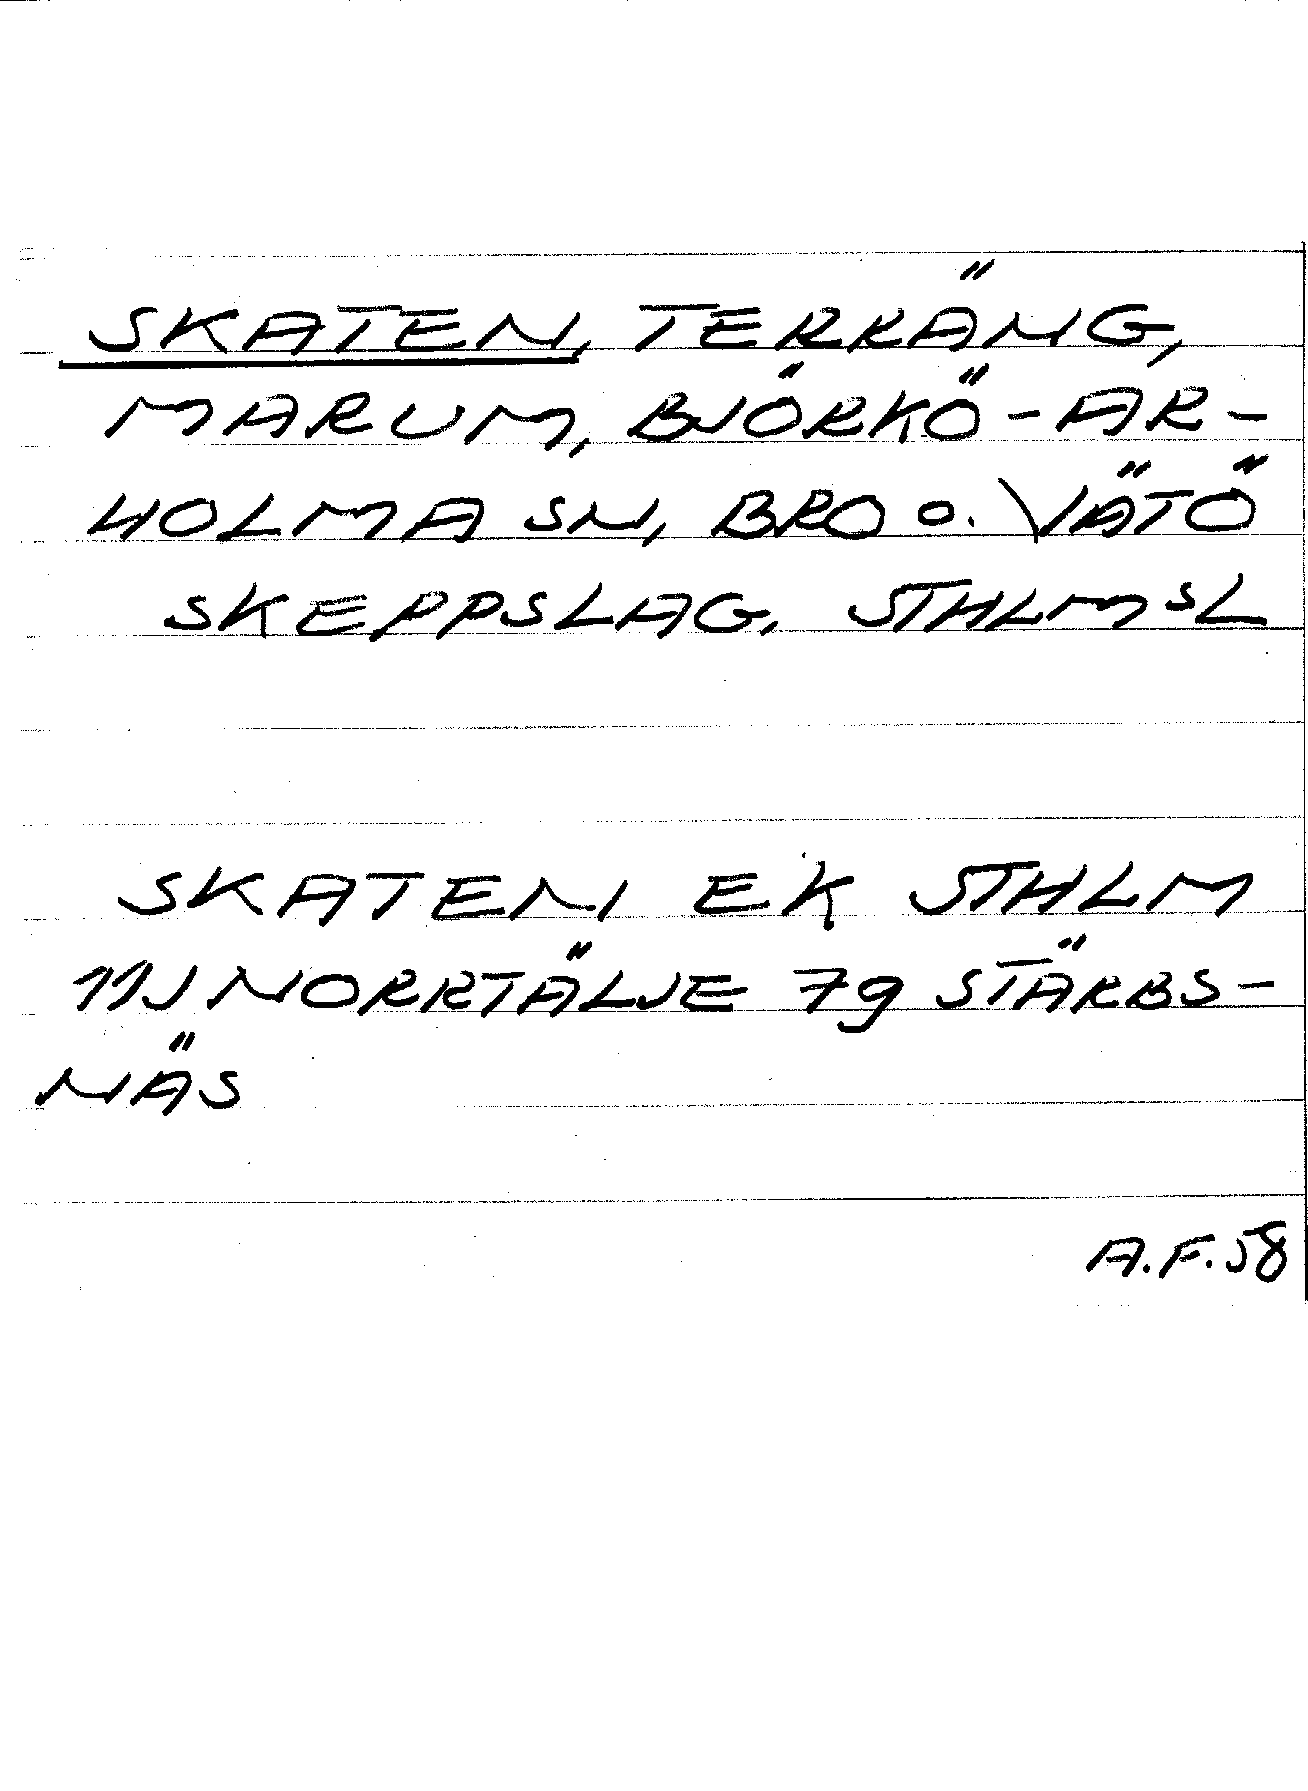 SKATEN, TERRÄNG,
MARUM, BJÖRKÖ-AR-
HOLMA SN, BRO O. VÄTÖ
SKEPPSLAG, STHLMSL
SKATEN EK STHLM
11J NORRTÄLJE 7g STÄRBS-
NÄS
A.F.58